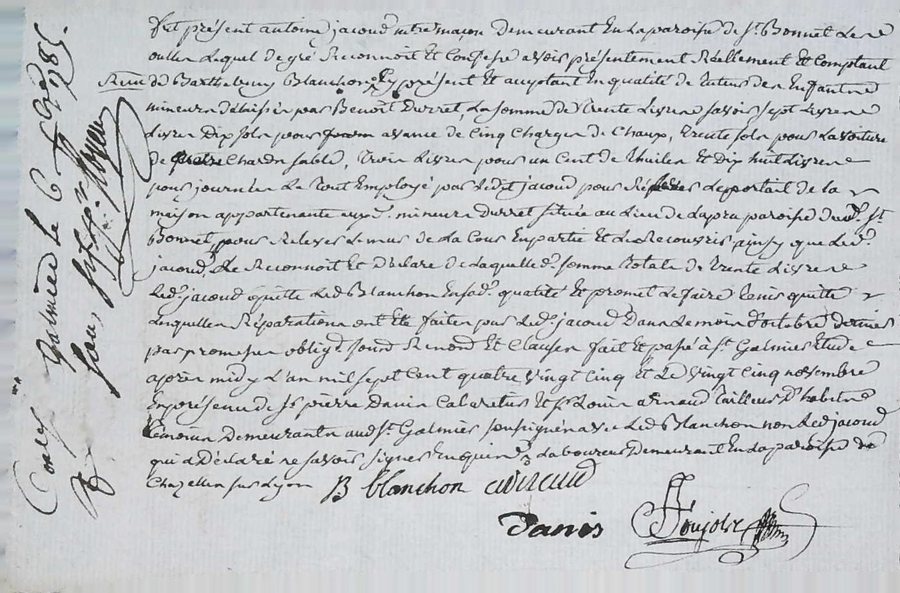 fut présent antoine jacoud m.tre maçon Demeurant En la paroisse de St Bonnet Les
oulles Lequel de gré Reconnoit Et Confesse avoir présentement Réellement Et Comptant
Reçu de Barthelemy Blanchon présent Et acceptant En qualité de tuteur des Enfants
mineurs délaissés par Benoit Durret, La somme de trente Livres savoir sept Livres
Dix sols pour avance de Cinq Charges de Chaux, trente sols pour La voiture
de Chards sable, trois Livres pour un Cent de thuiles Et Dix huit Livres
pour journées Le tout Employé par Ledit jacoud pour Le portail de la
maison appartenante auxd. mineurs Durret située au Lieu de Lapra paroisse dud. St
Bonnet, pour Relever Le mur de La Cour En partie Et Le Recouvrir ainsy que Led.
jacoud, Le Reconnoit Et Déclare de Laquelle d. somme totale de trente Livres
Led. jacoud quitte Led. Blanchon En sad. qualité Et promet Le faire tenir quitte
Lesquelles Réparations ont Eté faites par Led. jacoud Dans Le mois d'octobre dernier
par promesses oblig. Et Clauses fait Et passé à St Galmier Etude
après midy L'an mil sept Cent quatre vingt Cinq Et Le vingt Cinq novembre
En présence de Sr pierre Danis Cabaretier Et Sr Louis arnaud tailleur D'habits
témoins Demeurants aud. St Galmier soussignés avec Led. Blanchon non Led. jacoud
qui a Déclaré ne savoir signer Enquis Laboureur Demeurant En La paroisse de
Chazelles sur Lyon
B blanchon arnaud
Danis
Pujolx
Con.lé à St Galmier le 6 Xbre 1785.